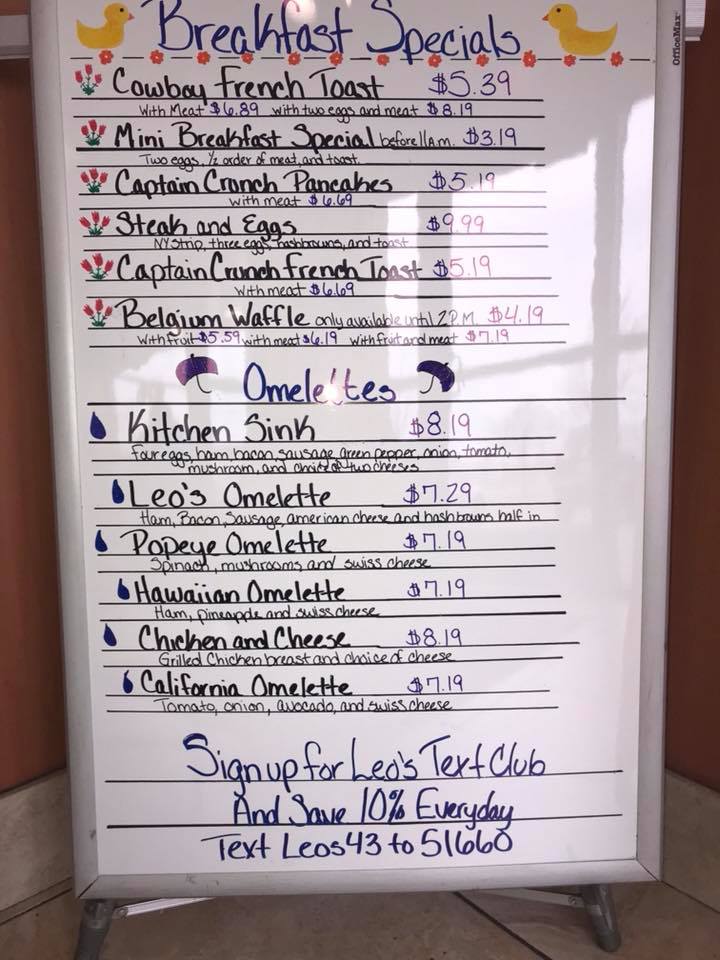 Breakfast Specials
OfficeMax
Cowboy French Toast $5.39
With Meat $6.89 with two eggs and meat $8.19
Mini Breakfast Special before 11 A.m. $3.19
Two eggs, 1/2 order of meat, and toast.
Captain Cronch Pancakes $5.19
with meat $6.69
Steak and Eggs $9.99
NY Strip, three eggs, hashbrowns, and toast
Captain Crunch French Toast $5.19
with meat $6.69
Belgium Waffle only available until 2 P.M. $4.19
with fruit $5.59 with meat $6.19 with fruit and meat $7.19
Omelettes
Kitchen Sink $8.19
four eggs, ham, bacon, sausage, green pepper, onion, tomato,
mushroom, and choice of two cheeses
Leo's Omelette $7.29
Ham, Bacon, Sausage, american cheese and hashbrowns half in
Popeye Omelette $7.19
Spinach, mushrooms and swiss cheese
Hawaiian Omelette $7.19
Ham, pineapple and swiss cheese
Chicken and Cheese $8.19
Grilled Chicken breast and choice of cheese
California Omelette $7.19
Tomato, onion, avocado, and swiss cheese
Sign up for Leo's Text Club
And Save 10% Everyday
Text Leos43 to 51660